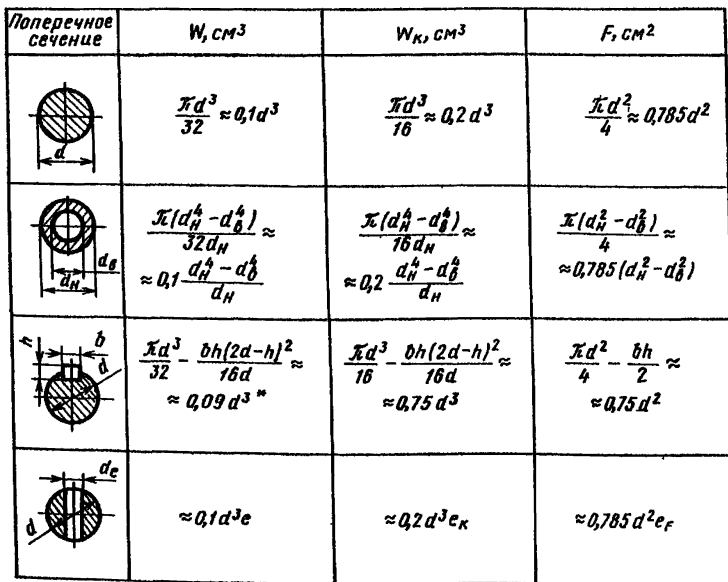 Поперечное сечение | W, см³ | Wк, см³ | F, см²
d | πd³/32 ≈ 0,1d³ | πd³/16 ≈ 0,2d³ | πd²/4 ≈ 0,785d²
dв dн | π(dн⁴ − dв⁴)/32dн ≈ | π(dн⁴ − dв⁴)/16dн ≈ | π(dн² − dв²)/4 ≈
≈ 0,1 (dн⁴ − dв⁴)/dн | ≈ 0,2 (dн⁴ − dв⁴)/dн | ≈ 0,785(dн² − dв²)
h b d | πd³/32 − bh(2d−h)²/16d ≈ | πd³/16 − bh(2d−h)²/16d ≈ | πd²/4 − bh/2 ≈
≈ 0,09d³ * | ≈ 0,75d³ | ≈ 0,75d²
dе d | ≈ 0,1d³e | ≈ 0,2d³eк | ≈ 0,785d²eF